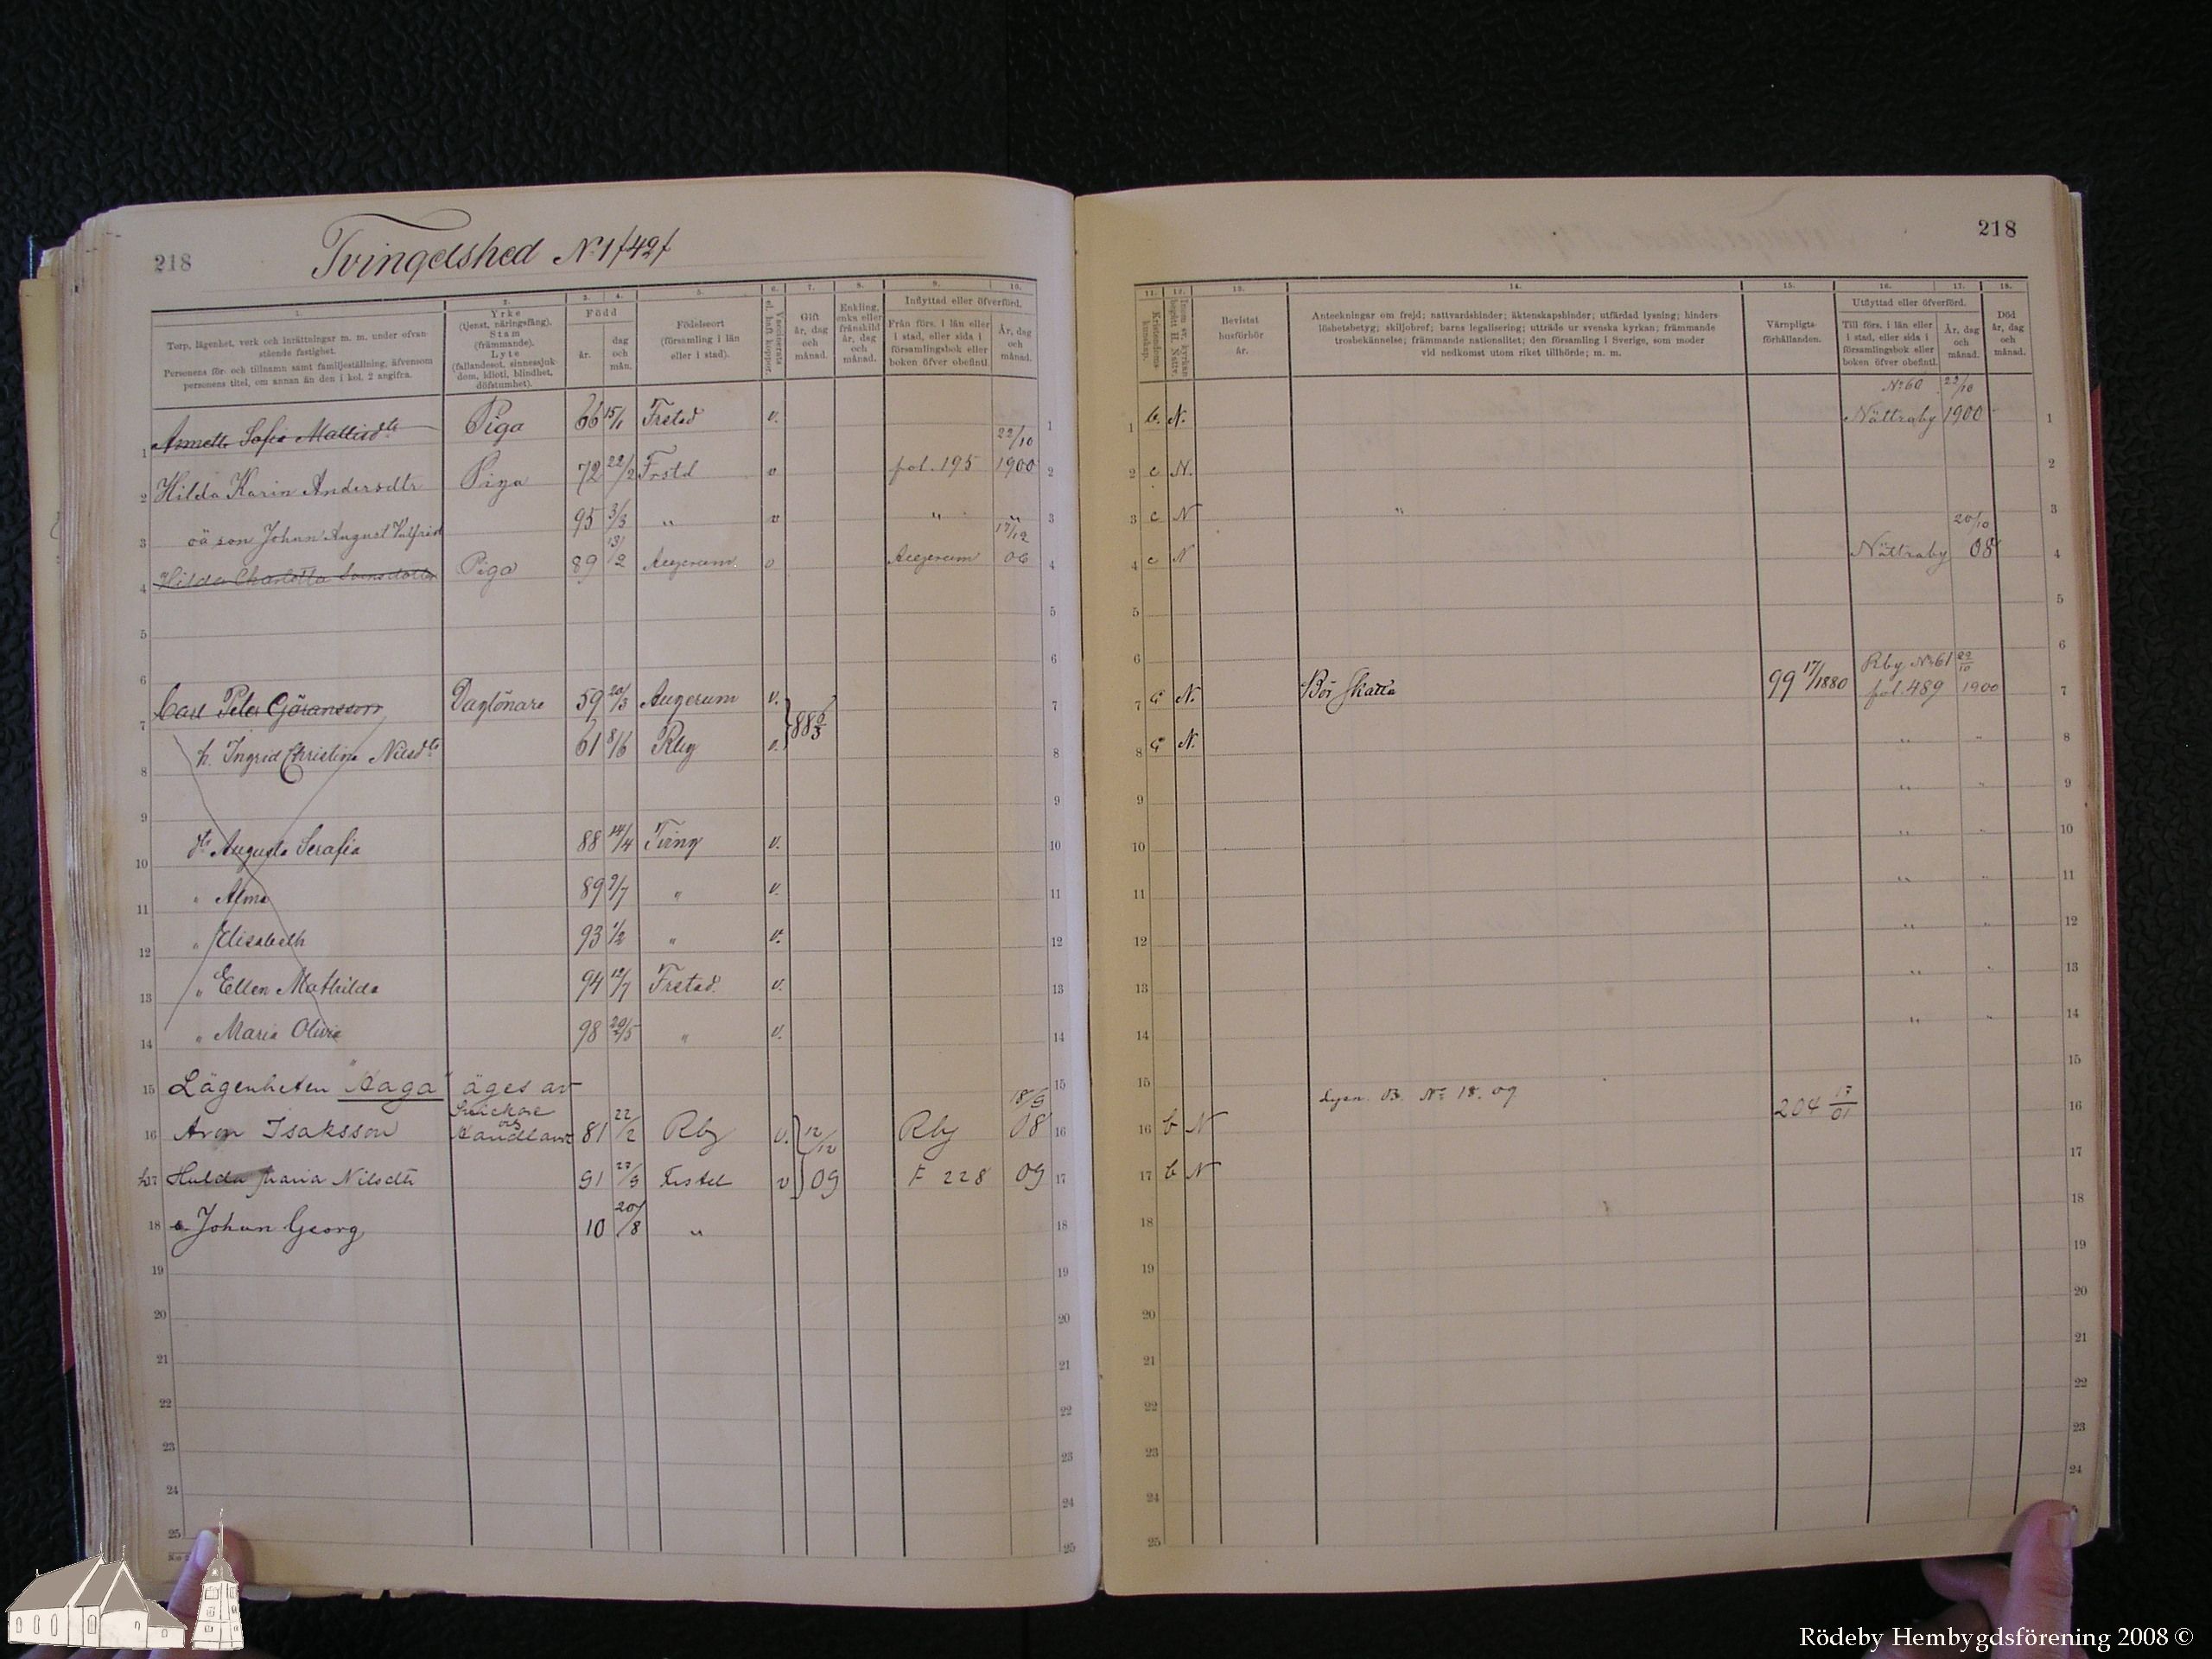 218
Tvingelshed No 1 f 42 f
1. 2. 3. 4. 5. 6. 7. 8. 9. 10.
Torp, lägenhet, verk och inrättningar m. m. under ofvanstående fastighet.
Personens för- och tillnamn samt familjeställning, äfvensom personens titel, om annan än den i kol. 2 angifra.
Yrke
(tjenst, näringsfång).
Stam
(främmande).
Lyte
(fallandesot, sinnessjukdom, idioti, blindhet, döfstumhet).
Född
år.
dag och mån.
Födelseort
(församling i län eller i stad).
Vaccinerats el. haft koppor.
Gift
år, dag och månad.
Enkling, enka eller frånskild
år, dag och månad.
Inflyttad eller öfverförd.
Från förs. i län eller i stad, eller sida i församlingsbok eller boken öfver obefintl.
År, dag och månad.
1 Annette Sofia Mattisdtr Piga 66 15/1 Frstad v. 1
2 Hilda Karin Andersdtr Piga 72 22/2 Frstd v pol. 195 22/10 1900 2
3 oä son Johan August Valfrid 95 3/3 " v " " 3
4 Hilda Charlotta Svensdotter Piga 89 13/2 Augerum v Augerum 17/12 06 4
5 5
6 6
7 Carl Peter Göransson Daglönare 59 20/3 Augerum v. 88 6/3 7
8 h. Ingrid Christina Nilsdtr 61 8/6 Rby v. 8
9 9
10 dtr Augusta Serafia 88 14/4 Tving v. 10
11 " Alma 89 9/7 " v. 11
12 " Elisabeth 93 1/2 " v. 12
13 " Ellen Mathilda 94 12/7 Frstad. v. 13
14 " Maria Olivia 98 29/5 " v. 14
15 Lägenheten "Haga" äges av 15
Snickare och
16 Aron Isaksson Handlare 81 22/2 Rby v. 12/12 Rby 18/9 08 16
h 17 Hulda Maria Nilsdtr 91 27/9 Frstd v 09 F 228 09 17
18 s. Johan Georg 10 20/8 " 18
19 19
20 20
21 21
22 22
23 23
24 24
25 25
218
11. 12. 13. 14. 15. 16. 17. 18.
Kristendomskunskap.
Inom sv. kyrkan begått H. Nattv.
Bevistat husförhör år.
Anteckningar om frejd; nattvardshinder; äktenskapshinder; utfärdad lysning; hinderslöshetsbetyg; skiljobref; barns legalisering; utträde ur svenska kyrkan; främmande trosbekännelse; främmande nationalitet; den församling i Sverige, som moder vid nedkomst utom riket tillhörde; m. m.
Värnpligtsförhållanden.
Utflyttad eller öfverförd.
Till förs. i län eller i stad, eller sida i församlingsbok eller boken öfver obefintl.
År, dag och månad.
Död
år, dag och månad.
No 60 22/10
1 b. N. Nättraby 1900 1
2 c N. 2
3 c N " 3
4 c N Nättraby 20/10 08 4
5 5
6 Rby No 61 22/10 6
7 G N. Bör Skatta 99 17/1880 pol. 489 1900 7
8 G N. " " 8
9 " " 9
10 " " 10
11 " " 11
12 " " 12
13 " " 13
14 " " 14
15 Lysn. B. No 18. 09 15
16 b N 204 17/01 16
17 b N 17
18 18
19 19
20 20
21 21
22 22
23 23
24 24
25
Rödeby Hembygdsförening 2008 ©